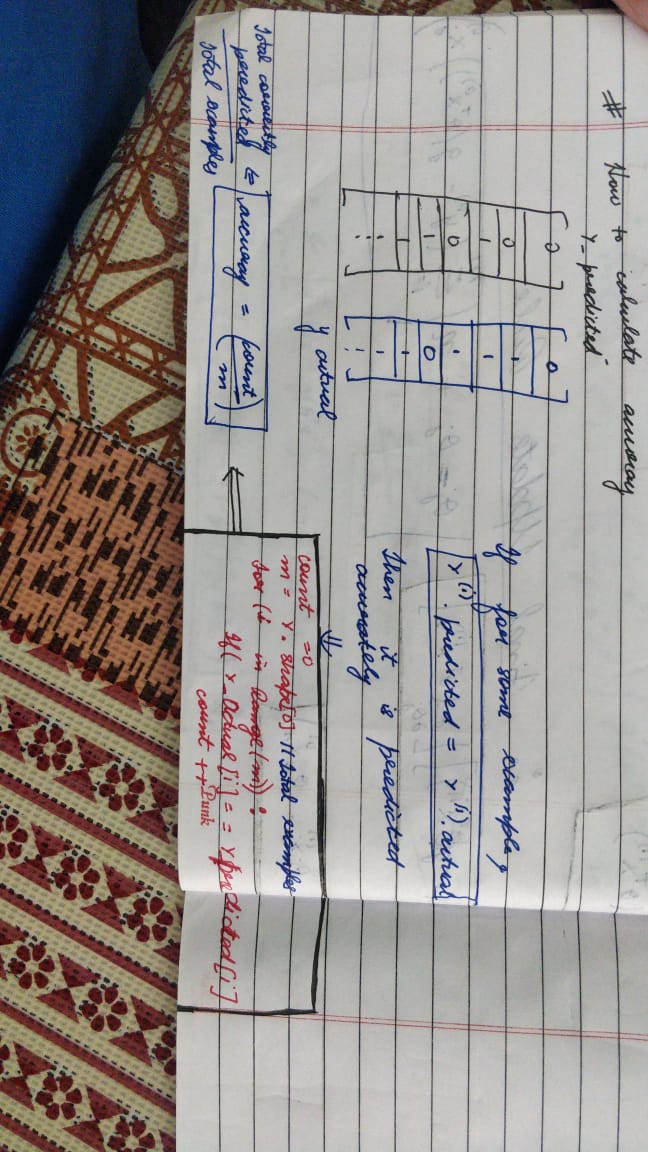 # How to calculate accuracy
Y_predicted
0
0
1
0
1
1
⋮
0
1
1
1
0
1
1
⋮
y actual
If for some example,
Y(i).predicted = Y(i).actual
Then it is predicted
accurately
⇓
count = 0
m = Y.shape[0] // total examples
for (i in range(m)):
if (Y_actual[i] == Ypredicted[i]
count ++
⇐
accuracy = (count/m)
⇐
Total correctly
predicted
Total examples